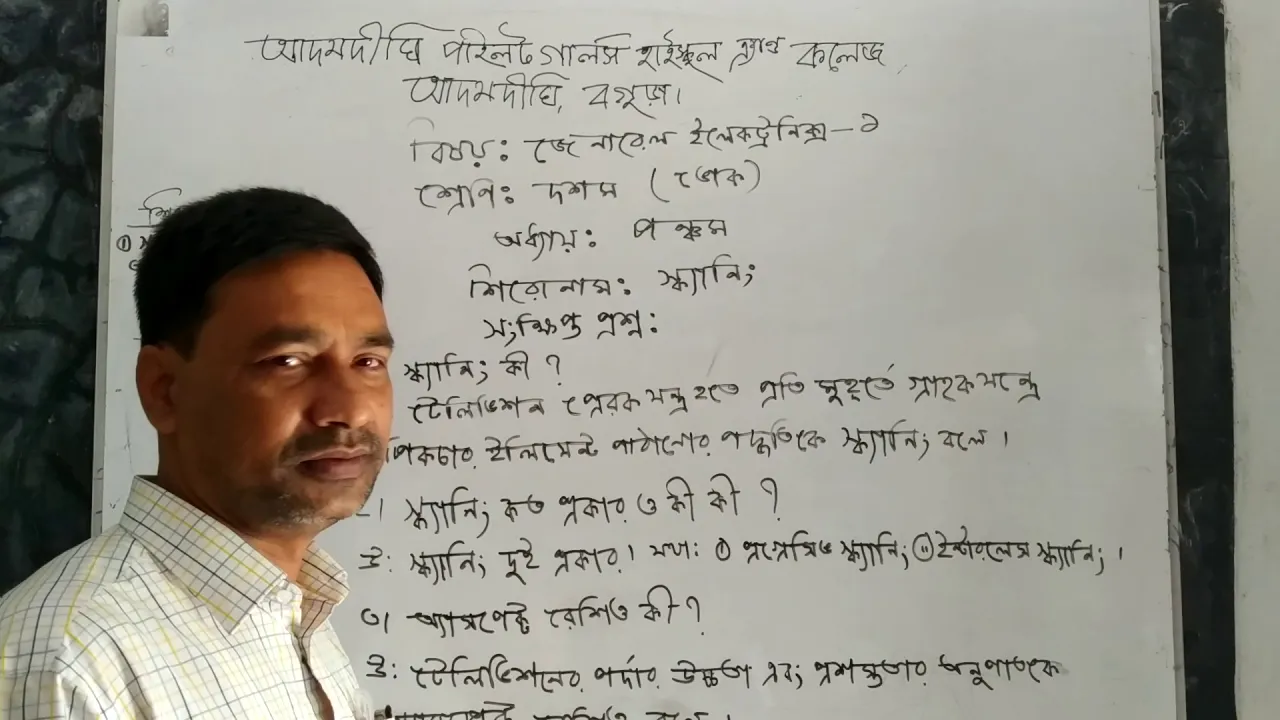 আদমদীঘি পাইলট গার্লস হাইস্কুল এ্যান্ড কলেজ
আদমদীঘি, বগুড়া।
বিষয়: জেনারেল ইলেকট্রনিক্স-১
শ্রেণি: দশম (ভোক)
অধ্যায়: পঞ্চম
শিরোনাম: স্ক্যানিং
সংক্ষিপ্ত প্রশ্ন:
স্ক্যানিং কী ?
টেলিভিশন প্রেরক যন্ত্র হতে প্রতি মুহূর্তে গ্রাহক যন্ত্রে
পিকচার ইলিমেন্ট পাঠানোর পদ্ধতিকে স্ক্যানিং বলে ।
স্ক্যানিং কত প্রকার ও কী কী ?
উ: স্ক্যানিং দুই প্রকার। যথা: (i) প্রগ্রেসিভ স্ক্যানিং (ii) ইন্টারলেস স্ক্যানিং ।
৩। অ্যাসপেক্ট রেশিও কী ?
উ: টেলিভিশনের পর্দার উচ্চতা এবং প্রশস্ততার অনুপাতকে
রেশিও বলে ।